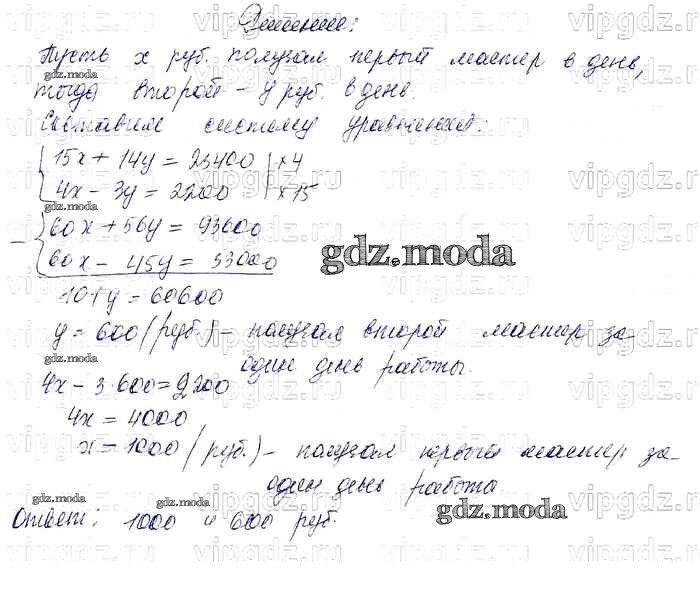 Решение:
Пусть x руб. получал первый мастер в день,
тогда второй – y руб. в день.
Составим систему уравнений:
15x + 14y = 23400 | × 4
4x – 3y = 2200 | × 15
– 60x + 56y = 93600
60x – 45y = 33000
gdz.moda
101y = 60600
y = 600 (руб.) – получал второй мастер за
один день работы.
4x – 3·600 = 2200
4x = 4000
x = 1000 (руб.) – получал первый мастер за
один день работа
Ответ: 1000 и 600 руб.
gdz.moda
vipgdz.ru